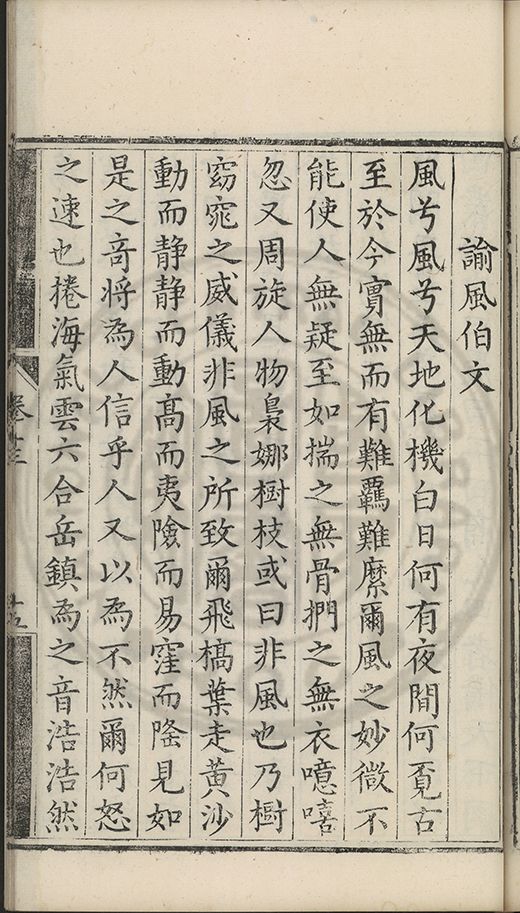 諭風伯文
風兮風兮天地化機白日何有夜間何覔古
至於今實無而有難羈難縻爾風之妙微不
能使人無疑至如揣之無骨捫之無衣噫嘻
忽又周旋人物裊娜樹枝或曰非風也乃樹
窈窕之威儀非風之所致爾飛槁葉走黃沙
動而静静而動髙而夷險而易窪而隆見如
是之竒將為人信乎人又以為不然爾何怒
之速也捲海氣雲六合岳鎮為之音浩浩然
卷十三